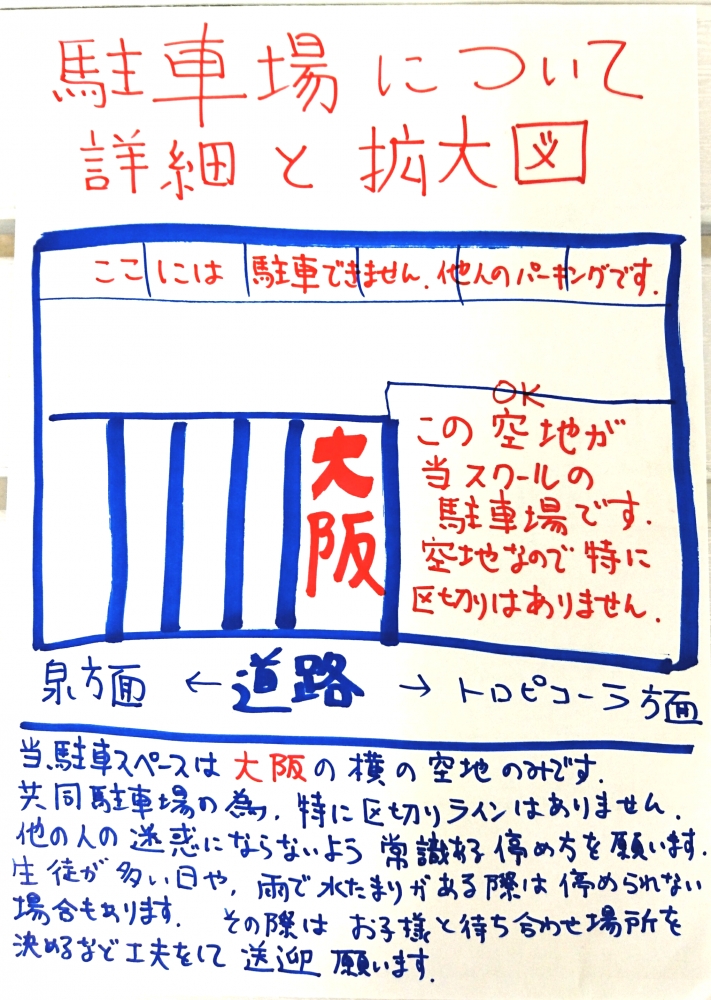 駐車場について
詳細と拡大図
ここには 駐車できません。他人のパーキングです。
OK
この空地が
当スクールの
駐車場です。
空地なので特に
区切りはありません。
大阪
泉方面 ← 道路 → トロピコーラ方面
当駐車スペースは大阪の横の空地のみです。
共同駐車場の為、特に区切りラインはありません。
他の人の迷惑にならないよう常識ある停め方を願います。
生徒が多い日や、雨で水たまりがある際は停められない
場合もあります。その際はお子様と待ち合わせ場所を
決めるなど工夫をして送迎願います。